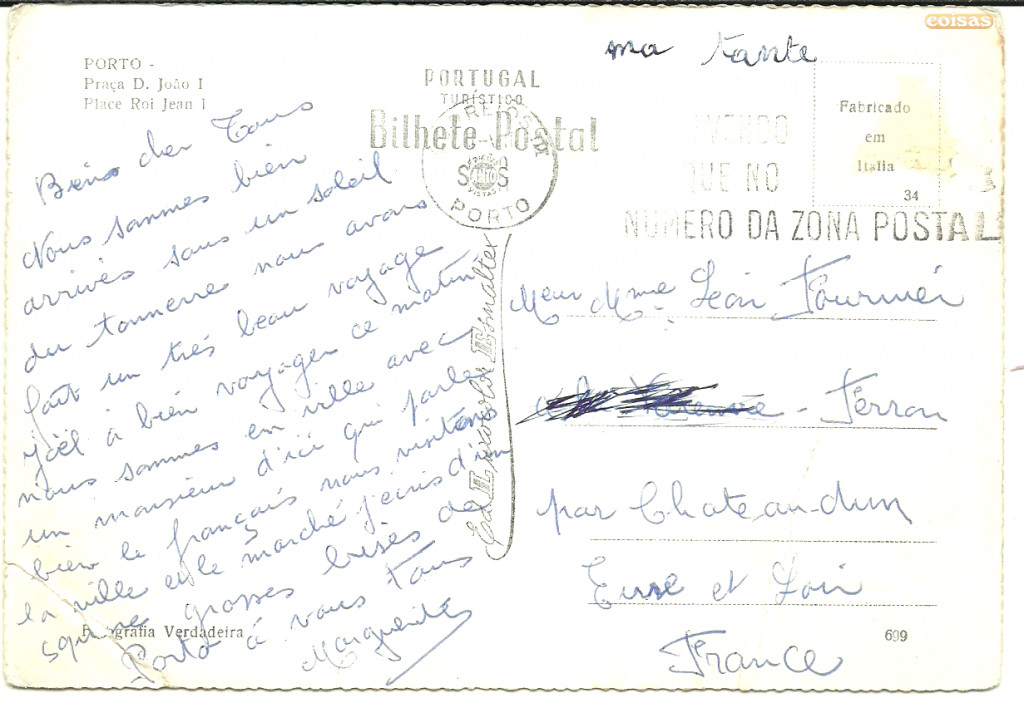 coisas
ma tante
PORTO -
Praça D. João I
Place Roi Jean I
PORTUGAL
TURÍSTICO
Bilhete-Postal
PORTO
QUE NO
NUMERO DA ZONA POSTAL
Fabricado
em
Italia
34
Biens cher Tous
Nous sommes bien
arrivés sous un soleil
du tonnerre nous avons
fait un très beau voyage
Joël à bien voyager ce matin
nous sommes en ville avec
un monsieur d'ici qui parle
bien le français nous visitons
la ville et le marché j'ecris d'un
square grosses bises de
Porto à vous tous
Marguerite
Fotografia Verdadeira
Mme Léon Fournier
Ferron
par Chateau-dun
Eure et Loir
France
699